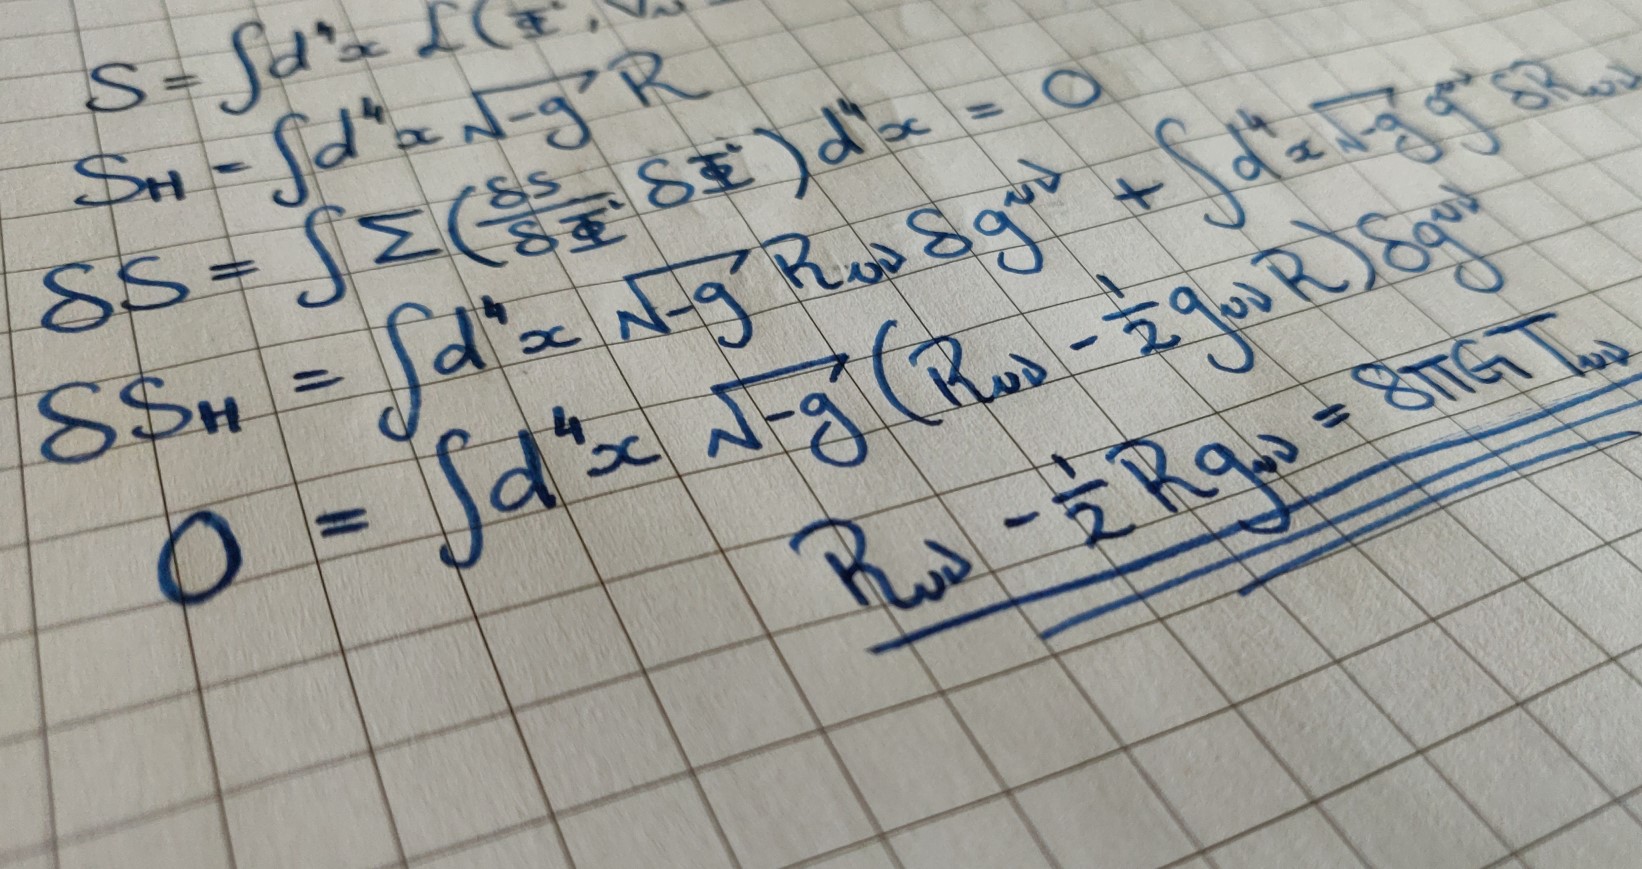 S = ∫d⁴x ℒ(Φⁱ, ∇μ
S_H = ∫d⁴x √-g R
δS = ∫Σ(δS/δΦⁱ δΦⁱ)d⁴x = 0
δS_H = ∫d⁴x √-g R_μν δg^μν + ∫d⁴x √-g g^μν δR_μν
0 = ∫d⁴x √-g (R_μν - ½ g_μν R) δg^μν
R_μν - ½ R g_μν = 8πG T_μν